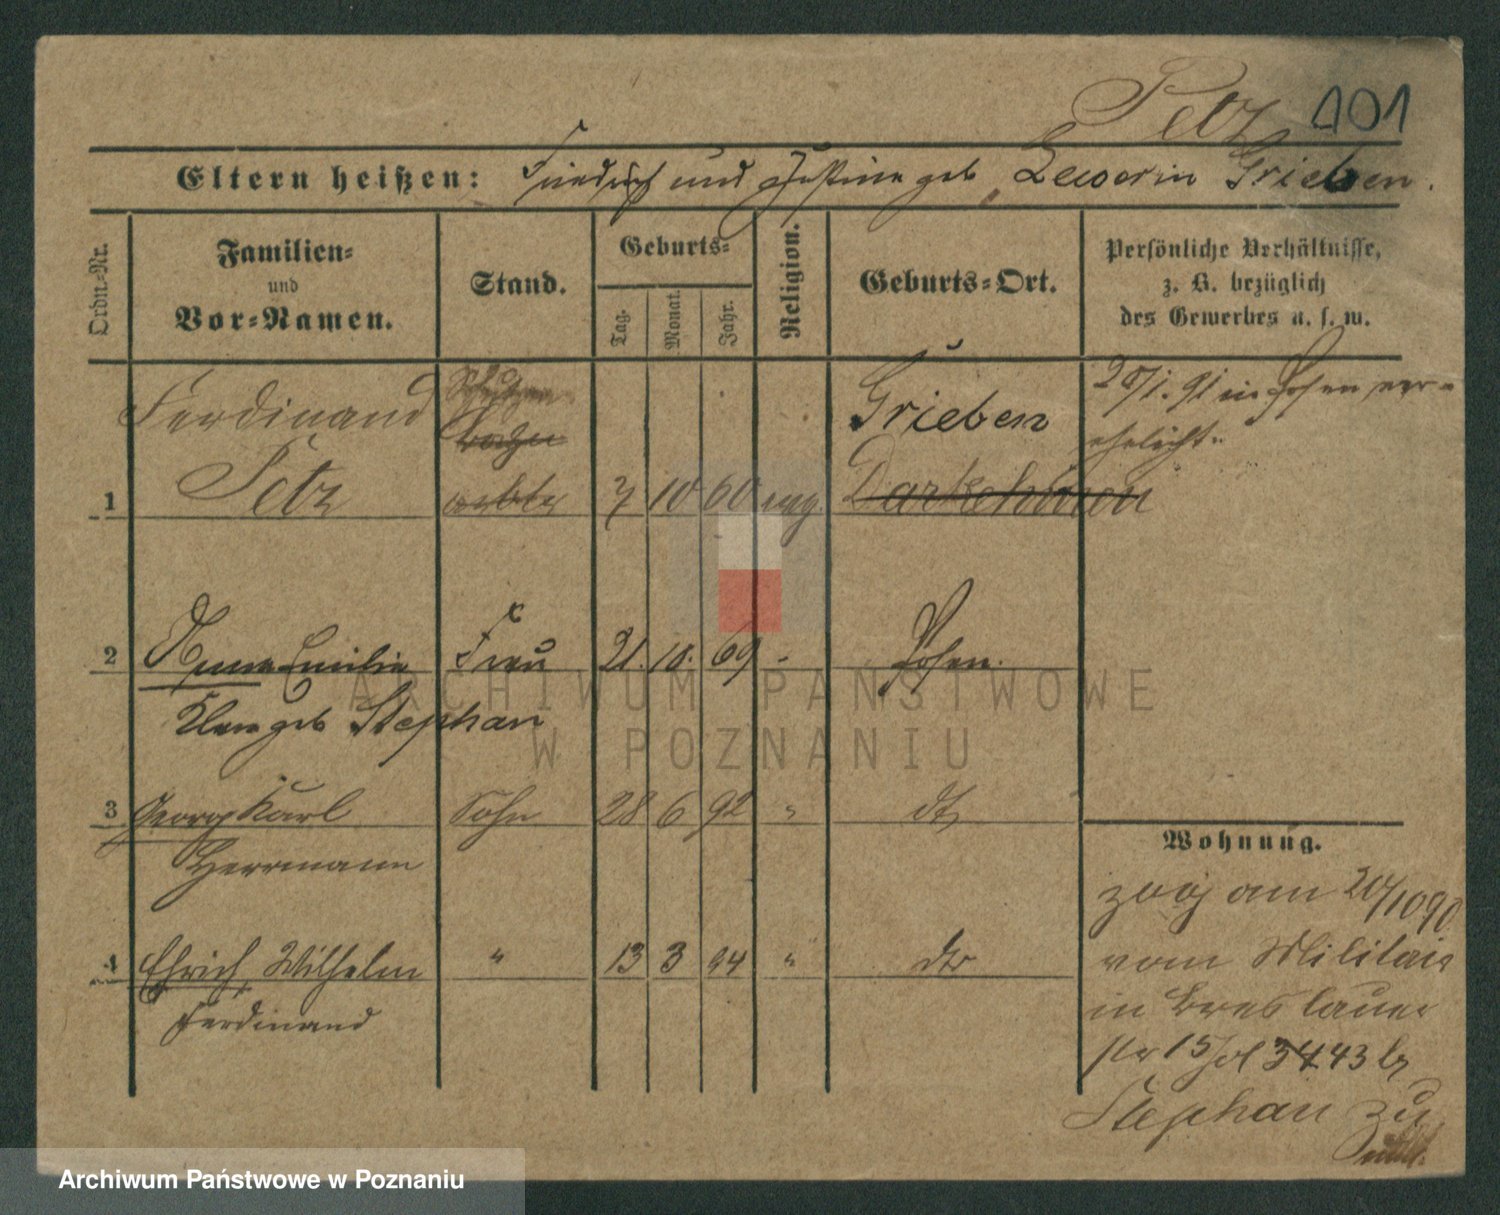 Petz 101
Eltern heißen: Friedrich und Justine geb Leworin Grieben.
Ordn.-Nr.
Familien-
und
Vor-Namen.
Stand.
Geburts-
Tag.
Monat.
Jahr.
Religion.
Geburts-Ort.
Persönliche Verhältnisse,
z. B. bezüglich
des Gewerbes u. s. w.
Ferdinand
Grieben
20/1. 91 in Posen ver-
ehelicht.
1 Petz arbtr 7 10 60 evg. Darkehmen
2 Anna Emilie Frau 21. 10. 69 - Posen.
geb Stephan
3 Georg Karl Sohn 28 6 92 " dto
Herrmann
4 Ehrich Wilhelm " 13 3 94 " dto
Ferdinand
Wohnung.
zog am 20/10 90
vom Militair
in Breslauer
str 15 3443 b
Stephan zu
ARCHIWUM PAŃSTWOWE
W POZNANIU
Archiwum Państwowe w Poznaniu